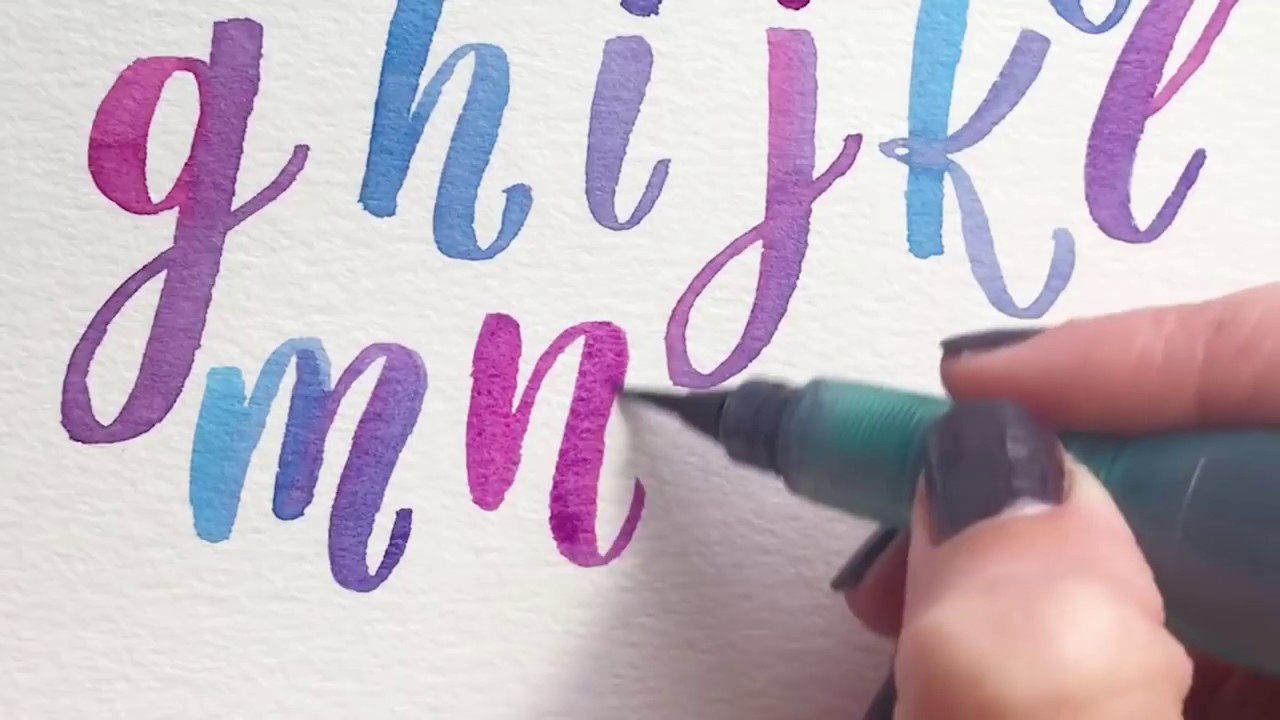 g h i j k l
m n